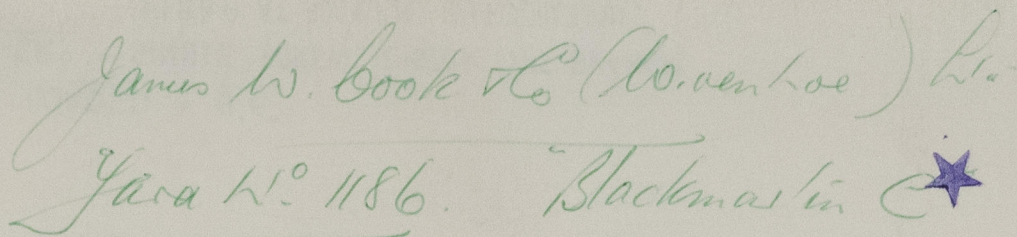 James W. Cook & Co (Wivenhoe) Ltd.
Yard No. 1186. "Blackmartin